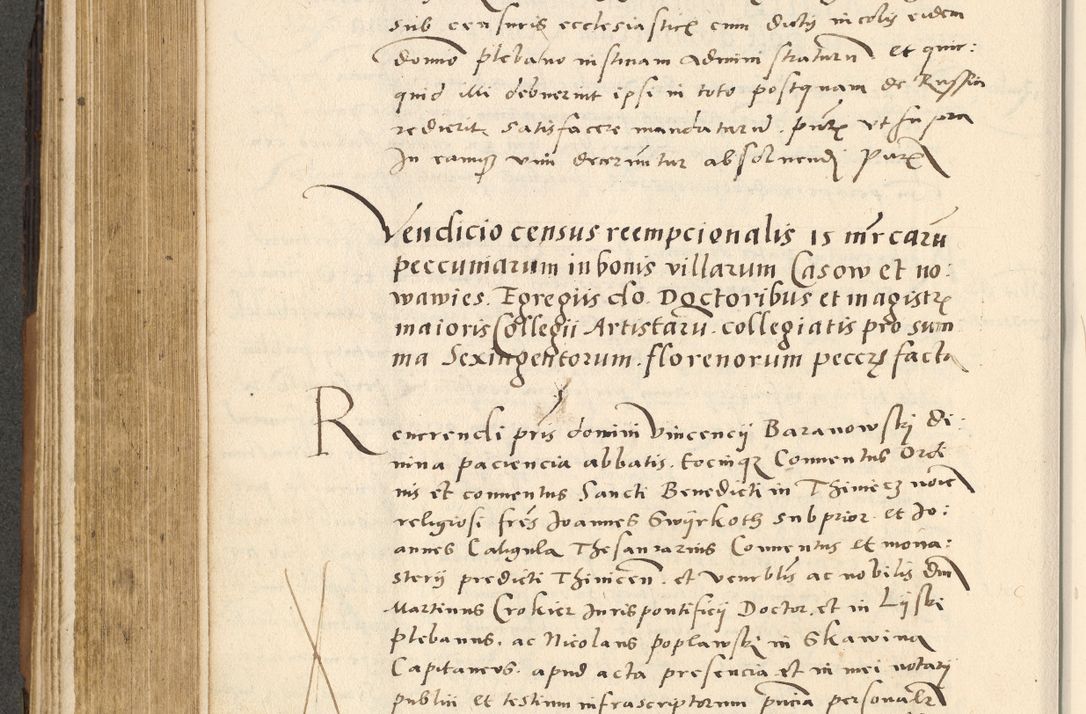 sub censuris ecclesiasticis cum dictis incolis eidem
domino plebano in stinam administraturum et quic:
quid illi debuerint ipsi in toto postquam de Russia
redierit satisfacere mandaturum. put ut supra
In eamque vim decernitur absolvendi Part
Vendicio census reempcionalis 15 mrcaru
peccuniarum in bonis villarum Casow et no:
wawies. Egregiis do. Doctoribus et magistr
maioris Collegii Artistaru. collegiatis pro sum
ma Sexingentorum. florenorum peccę facta
Reuerendi pris domini Vincencij Baranowski di:
nina paciencia abbatis. tociusq Conuentus Ordi
nis et conuentus Sancti Benedicti in Thiniecz noie
religiosi fres Joannes Gwijrkoth subprior. et Jo:
annes Caligula Thesaurarius Conuentus et mona:
sterij predicti Thinicen. et venrblis ac nobilis dni
Martinus Crokier Juris pontificij Doctor, et in Lijski
plebanus. ac Nicolaus poplawski in Skawina
Capitaneus. apud acta presencia et in mei notarij
publii et testium infrascriptorum pncia personalr